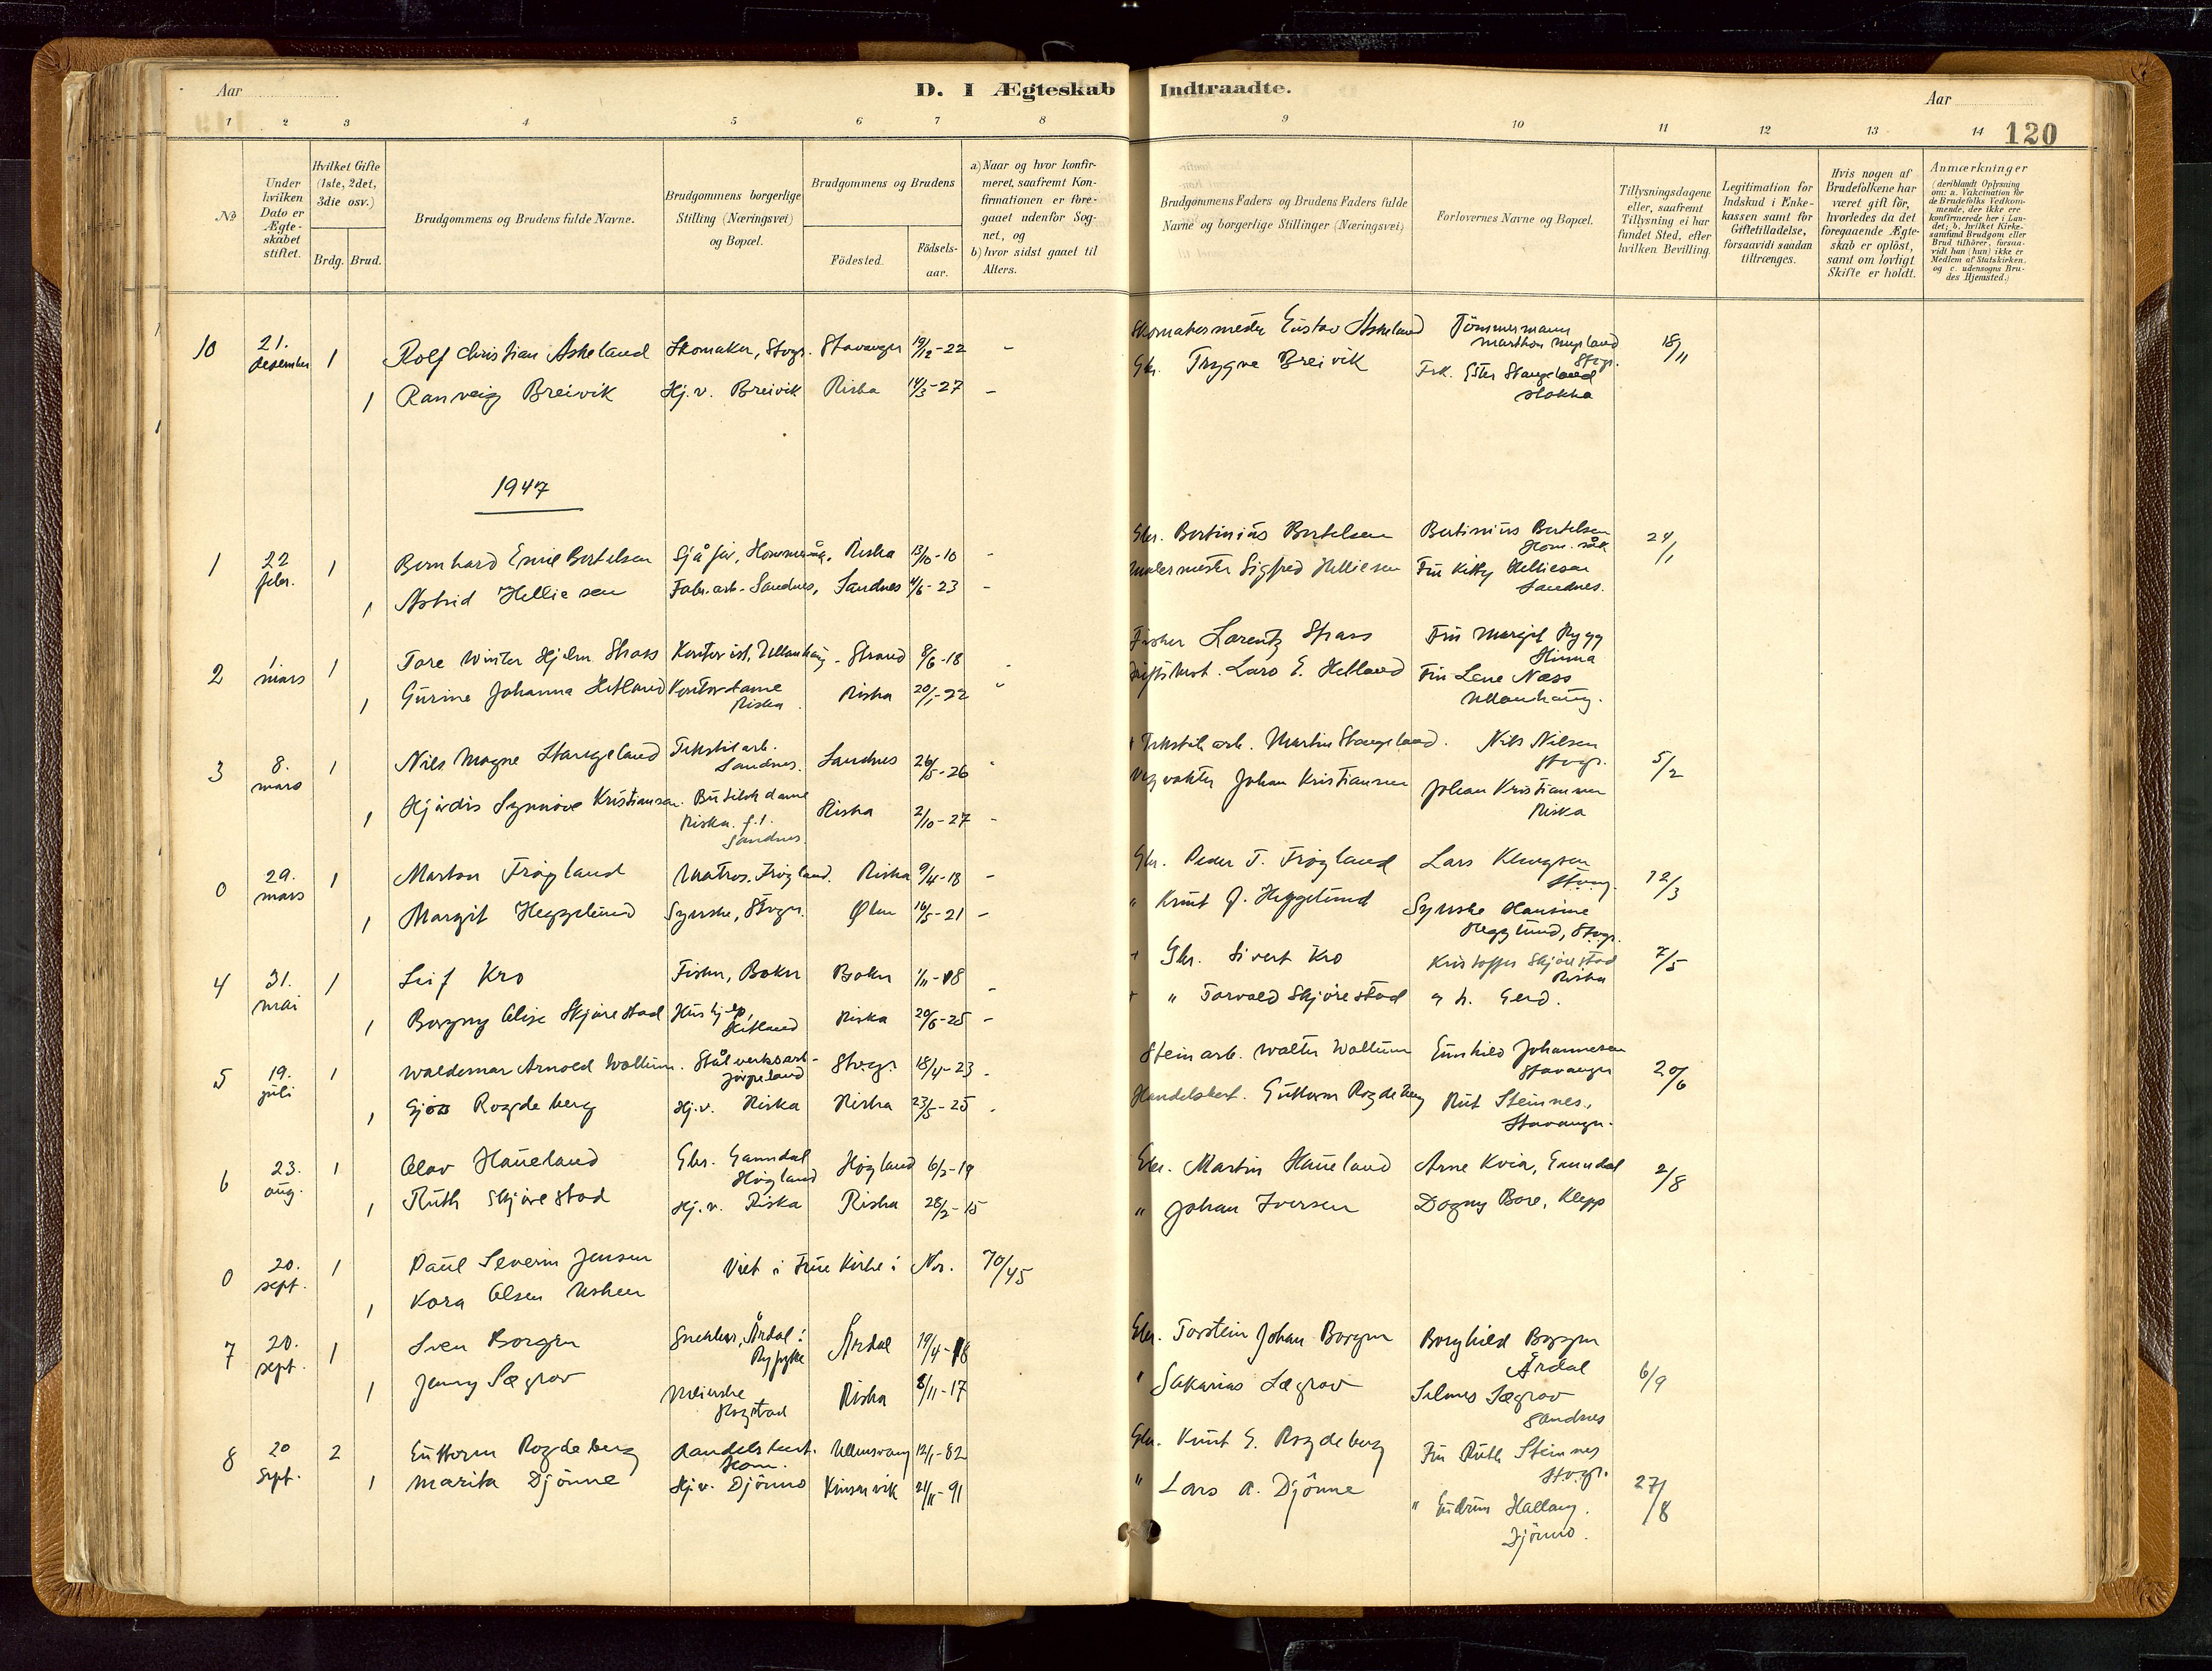 Aar
D. I Ægteskab Indtraadte.
Aar
120
1 2 3 4 5 6 7 8 9 10 11 12 13 14
No
Under hvilken Dato er Ægteskabet stiftet.
Hvilket Gifte (1ste, 2det, 3die osv.)
Brdg. Brud.
Brudgommens og Brudens fulde Navne.
Brudgommens borgerlige Stilling (Næringsvei) og Bopæl.
Brudgommens og Brudens
Födested.
Födsels-aar.
a) Naar og hvor konfir-
meret, saafremt Kon-
firmationen er fore-
gaaet udenfor Sog-
net, og
b) hvor sidst gaaet til
Alters.
Brudgommens Faders og Brudens Faders fulde
Navne og borgerlige Stillinger (Næringsvei)
Forlovernes Navne og Bopæl.
Tillysningsdagene
eller, saafremt
Tillysning ei har
fundet Sted, efter
hvilken Bevilling.
Legitimation for
Indskud i Enke-
kassen samt for
Giftetilladelse,
forsaavidt saadan
tiltrænges.
Hvis nogen af
Brudefolkene har
været gift för,
hvorledes da det
foregaaende Ægte-
skab er oplöst,
samt om lovligt
Skifte er holdt.
Anmærkninger
(deriblandt Oplysning
om: a. Vakcination for
de Brudefolks Vedkom-
mende, der ikke ere
konfirmerede her i Lan-
det; b. hvilket Kirke-
samfund Brudgom eller
Brud tilhörer, forsaa-
vidt han (hun) ikke er
Medlem af Statskirken,
og c. udensogns Bru-
des Hjemsted.)
10 21. desember 1 Rolf Christian Askeland Skomaker, Stvgr. Stavanger 19/12-22 - Skomakermester Gustav Askeland Tömmermann
Stvgr. 18/11
1 Ranveig Breivik Hj.v. Breivik Riska 14/3-27 - Gbr. Trygve Breivik Frk. Ester Stangeland
Stokka
1947
1 22 febr. 1 Bernhard Emil Bertelsen Sjåfør, Hommersåk. Riska 13/10-10 - Gbr. Bertinius Bertelsen Bertinius Bertelsen
Hom.såk 24/1
1 Astrid Helliesen Fabr.arb. Sandnes, Sandnes 4/6-23 - Malermester Sigfred Helliesen Fru Kitty Helliesen
Sandnes.
2 1 mars 1 Tore Winter Hjelm Strass Kontorist, Ullanhaug - Strand 8/6-18 - Fisker Lorentz Strass Fru Margit Rygg
Hinna
1 Gurine Johanna Hetland Kontordame
Riska Riska 20/1-22 " Lars E. Hetland Fru Lene Næss
Ullanhaug.
3 8. mars 1 Nils Magne Stangeland Tekstilarb.
Sandnes. Sandnes 26/5-26 - Tekstilarb. Martin Stangeland. Nils Nilsen
Stvgr. 5/2
1 Hjördis Synnöve Kristiansen. Butikkdame
Riska. f.t.
Sandnes. Riska 2/10-27 - Vegvokter Johan Kristiansen Johan Kristiansen
Riska
0 29. mars 1 Marton Frøyland Matros. Frøyland. Riska 9/4-18 - Gbr. Peder T. Frøyland Lars Klungsen
Stvgr. 12/3
1 Margit Heggelund Syerske, Stvgr. Ølen 16/5-21 - " Knut J. Heggelund Syerske Hansine
Heggelund, Stvgr.
4 31. mai 1 Leif Kro Fisker, Bokn Bokn 1/11-18 - + Gbr. Sivert Kro Kristoffer Skjörestad
Riska 7/5
1 Borgny Alise Skjörestad Hushjelp,
Hetland Riska 20/6-25 - + " Torvald Skjörestad og h. Gerd.
5 19. juli 1 Waldemar Arnold Wallum. Stålverksarb-
Jörpeland Stvgr. 18/4-23 - Steinarb. Walter Wallum Gunhild Johannesen
Stavanger 20/6
1 Gjöa Rogdeberg Hj.v. Riska Riska 23/5-25 - Handelsbest. Guttorm Rogdeberg Rut Steinnes,
Stavanger.
6 23. aug. 1 Olav Haueland Gbr. Ganndal
Högland Högland 6/2-19 Gbr. Martin Haueland Arne Kvia, Ganndal 2/8
1 Ruth Skjörestad Hj.v. Riska Riska 28/2-15 " Johan Iversen Dagny Bore, Klepp
0 20. sept. 1 Paul Severin Jensen Viet i Frue Kirke i Nr. 70/45
1 Kora Olsen Usken
7 20. sept. 1 Sven Borgen Snekker, Årdal i
Ryfylke Årdal 19/4-18 Gbr. Torstein Johan Borgen Borghild Borgen
Årdal 6/9
1 Jenny Sægrov Meierske
Rogstad Riska 8/11-17 " Sakarias Sægrov Selmer Sægrov
Sandnes
8 20 Sept. 2 Guttorm Rogdeberg Handelsbest.
Hom. Ullensvang 12/1-82 Gbr. Knut G. Rogdeberg Fru Ruth Steinnes
Stvgr.
1 Marita Djönne Hj.v. Djönno Kinsarvik 21/11-91 " Lars A. Djönne " Gudrun Hallang.
Djönno. 27/8